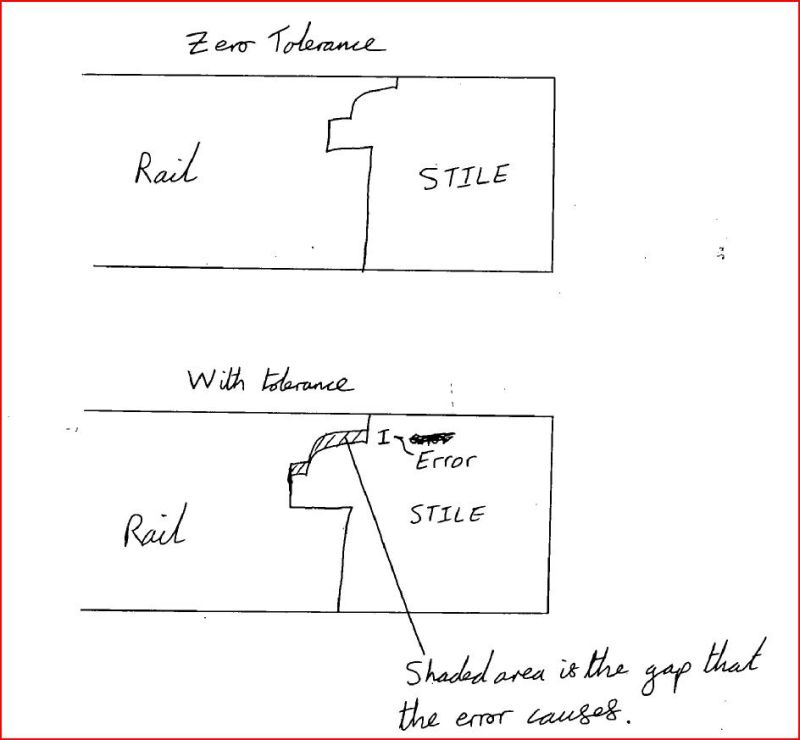 Zero Tolerance
Rail
STILE
With tolerance
I
Error
STILE
Rail
Shaded area is the gap that
the error causes.